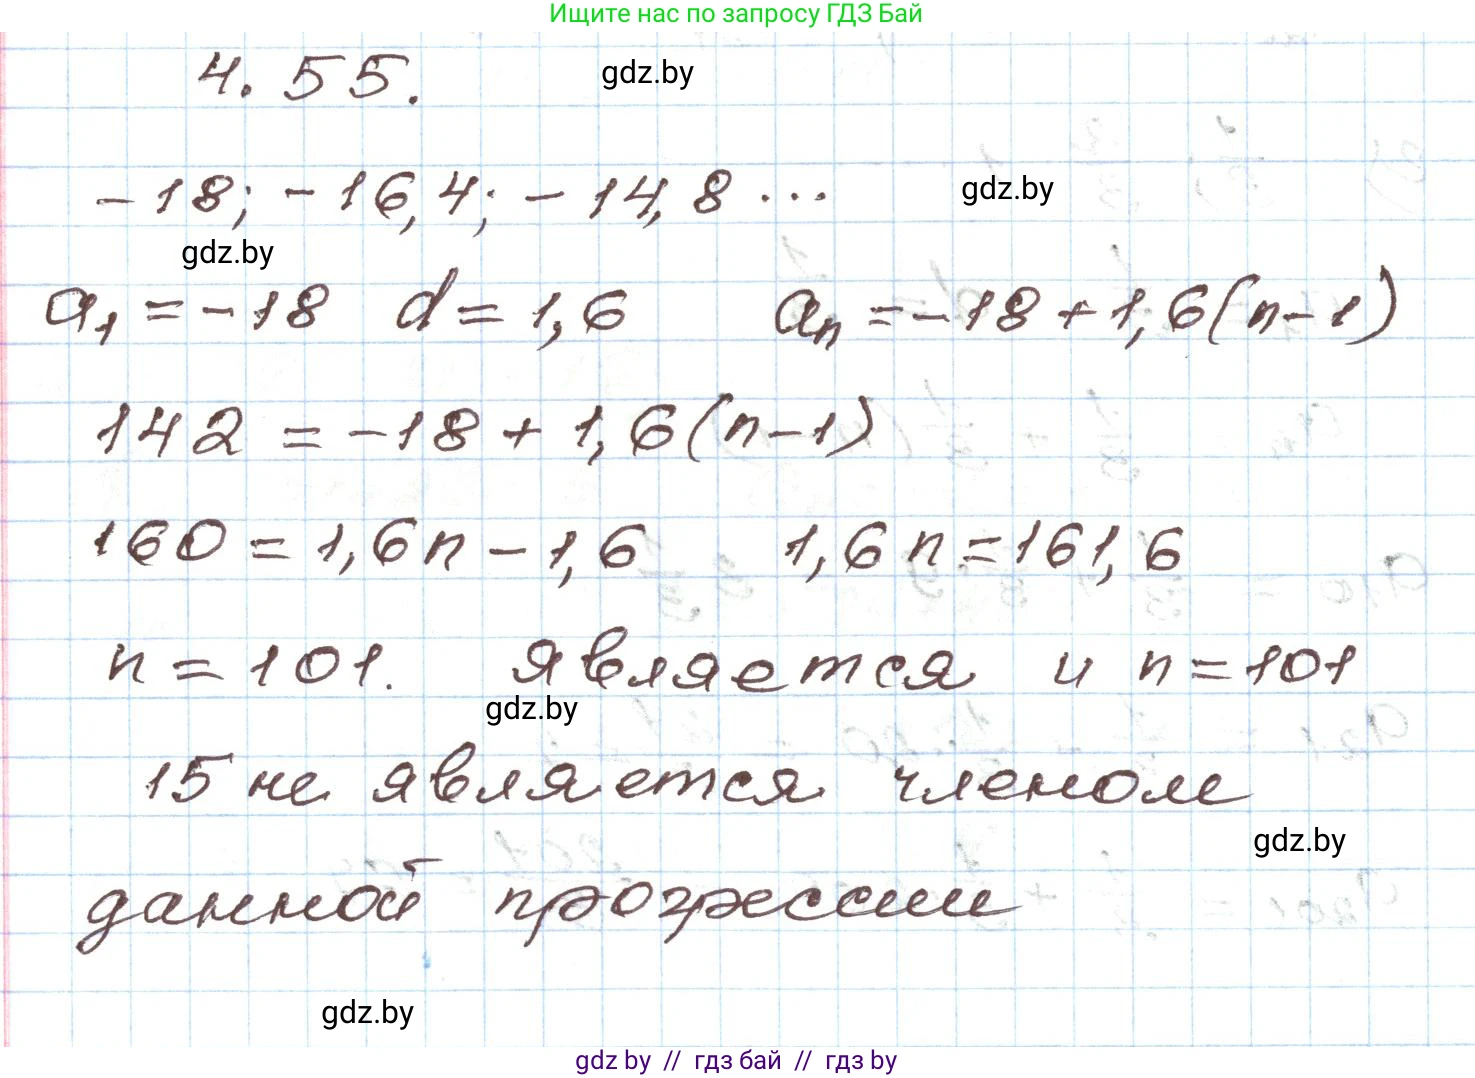 Ищите нас по запросу ГДЗ Бай
4.55.
gdz.by
-18; -16,4; -14,8 ...
gdz.by
gdz.by
a₁ = -18 d = 1,6 aₙ = -18 + 1,6(n-1)
142 = -18 + 1,6(n-1)
160 = 1,6n - 1,6 1,6n = 161,6
n = 101. является и n = 101
gdz.by
15 не является членом
gdz.by
данной прогрессии
gdz.by
gdz by // гдз бай // гдз by